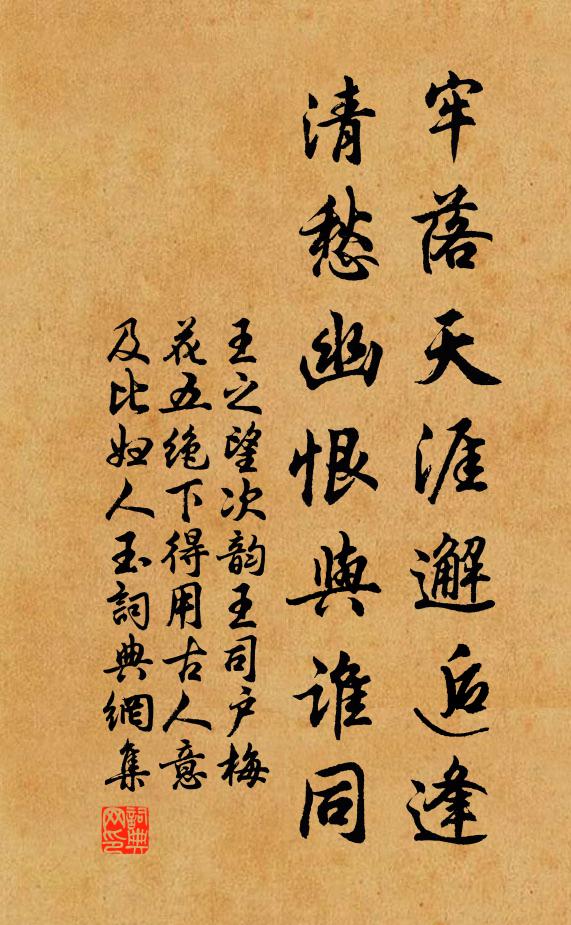 牢落天涯邂逅逢
清愁幽恨與誰同
王之望次韵王司户梅
花五绝下得用古人意
及比妇人玉詞典網集
詞典
网印